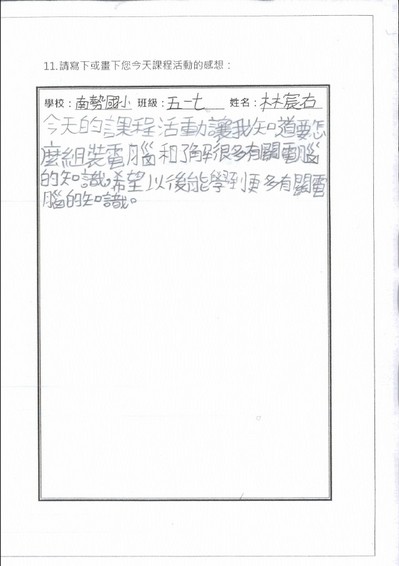 11.請寫下或畫下您今天課程活動的感想：
學校：南勢國小 班級：五一七 姓名：林宸右
今天的課程活動讓我知道要怎
麼組裝電腦和了解很多有關電腦
的知識。希望以後能學到更多有關電
腦的知識。